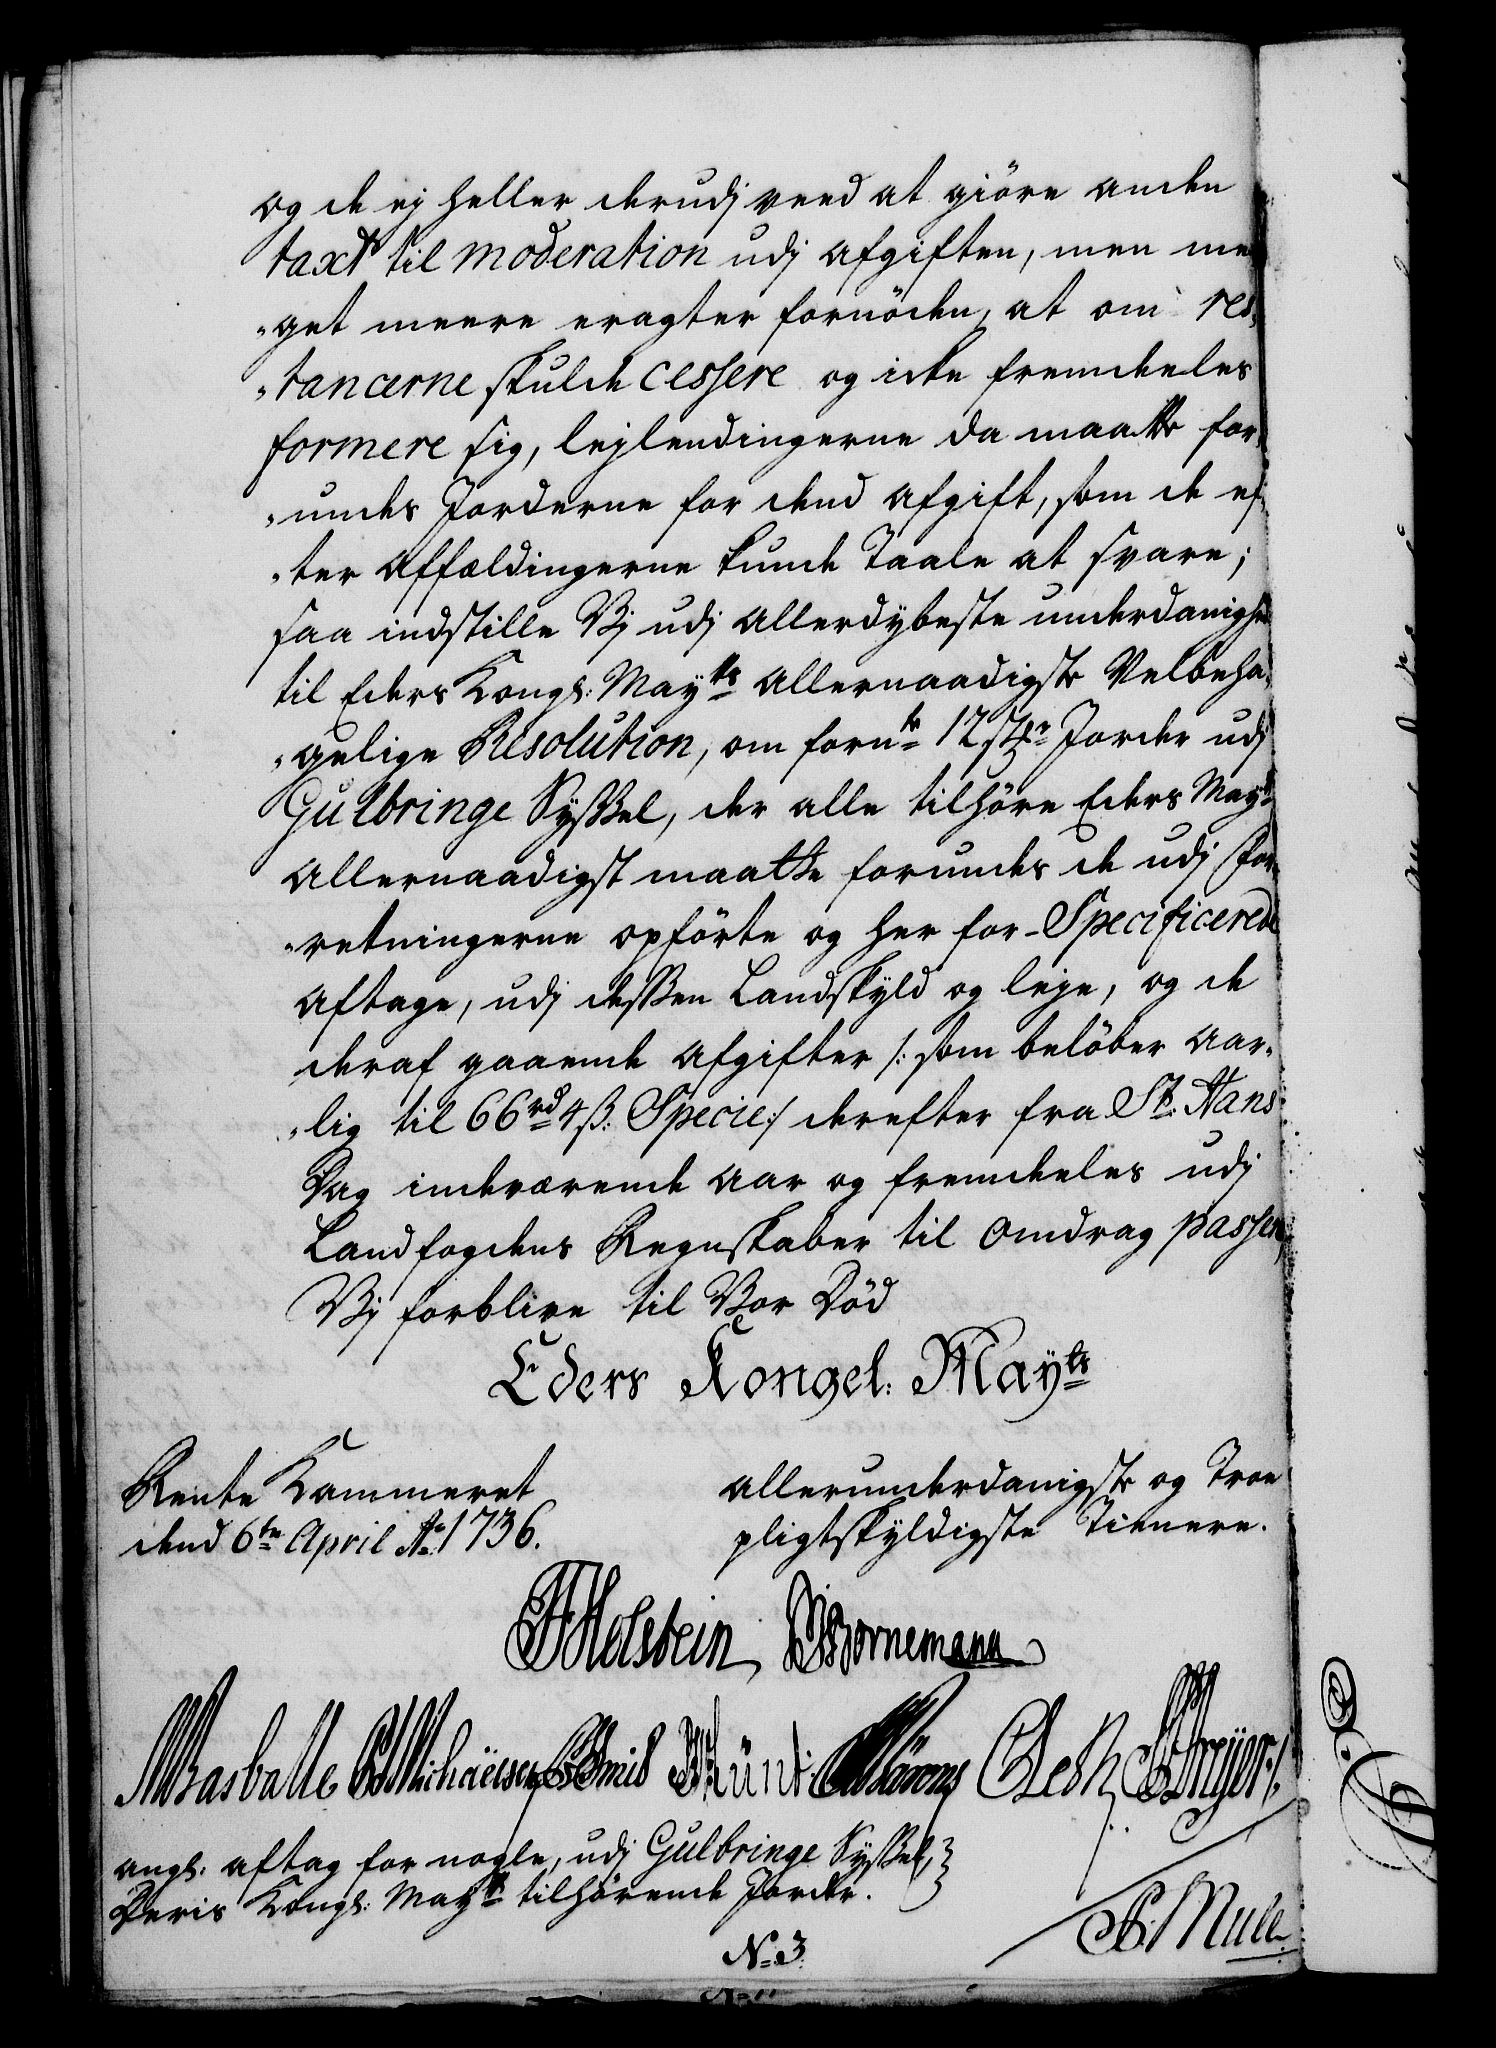 og de ej heller derudj veed at giöre anden
taxt til moderation udj afgiften, men me
"get meere eragter fornöden, at om res„
„tancerne skulde cessere og icke fremdeeles
formere sig, lejlendingerne da maatte for„
„undes Jorderne for dend afgift, som de ef„
„ter affældingerne kunde taale at svare;
saa indstille Vj udj allerdybeste underdanighed
til Eders Kongl: Mayts allernaadigste Velbeha„
„gelige Resolution, om fornte 12 stkr Jorder udj
Gulbringe Syssel, der alle tilhöre Eders Mayts
allernaadigst maatte forundes de udj for„
„retningerne opförte og her for Specificerede
aftage, udj dessen Landskyld og leje, og de
deraf gaaende afgifter /: som belöber aar„
„lig til 66 rd 4 ß: Specie :/ derefter fra St: Hans
Dag indeværende aar og fremdeeles udj
Landfogdens Regnskaber til omdrag passere,
Vj forblive til Vor Död
Eders Kongel: Mayts
Rente Kammeret
dend 6te April Ao 1736.
allerunderdanigste og troe
pligtskyldigste Tienere.
FHolstein Bornemann
Basballe Michaelsen Smid Münt
angl: aftag for nogle, udj Gulbringe Syssel,
Deris Kongl: Mayts tilhörende Jorder.
No 3.
Mule